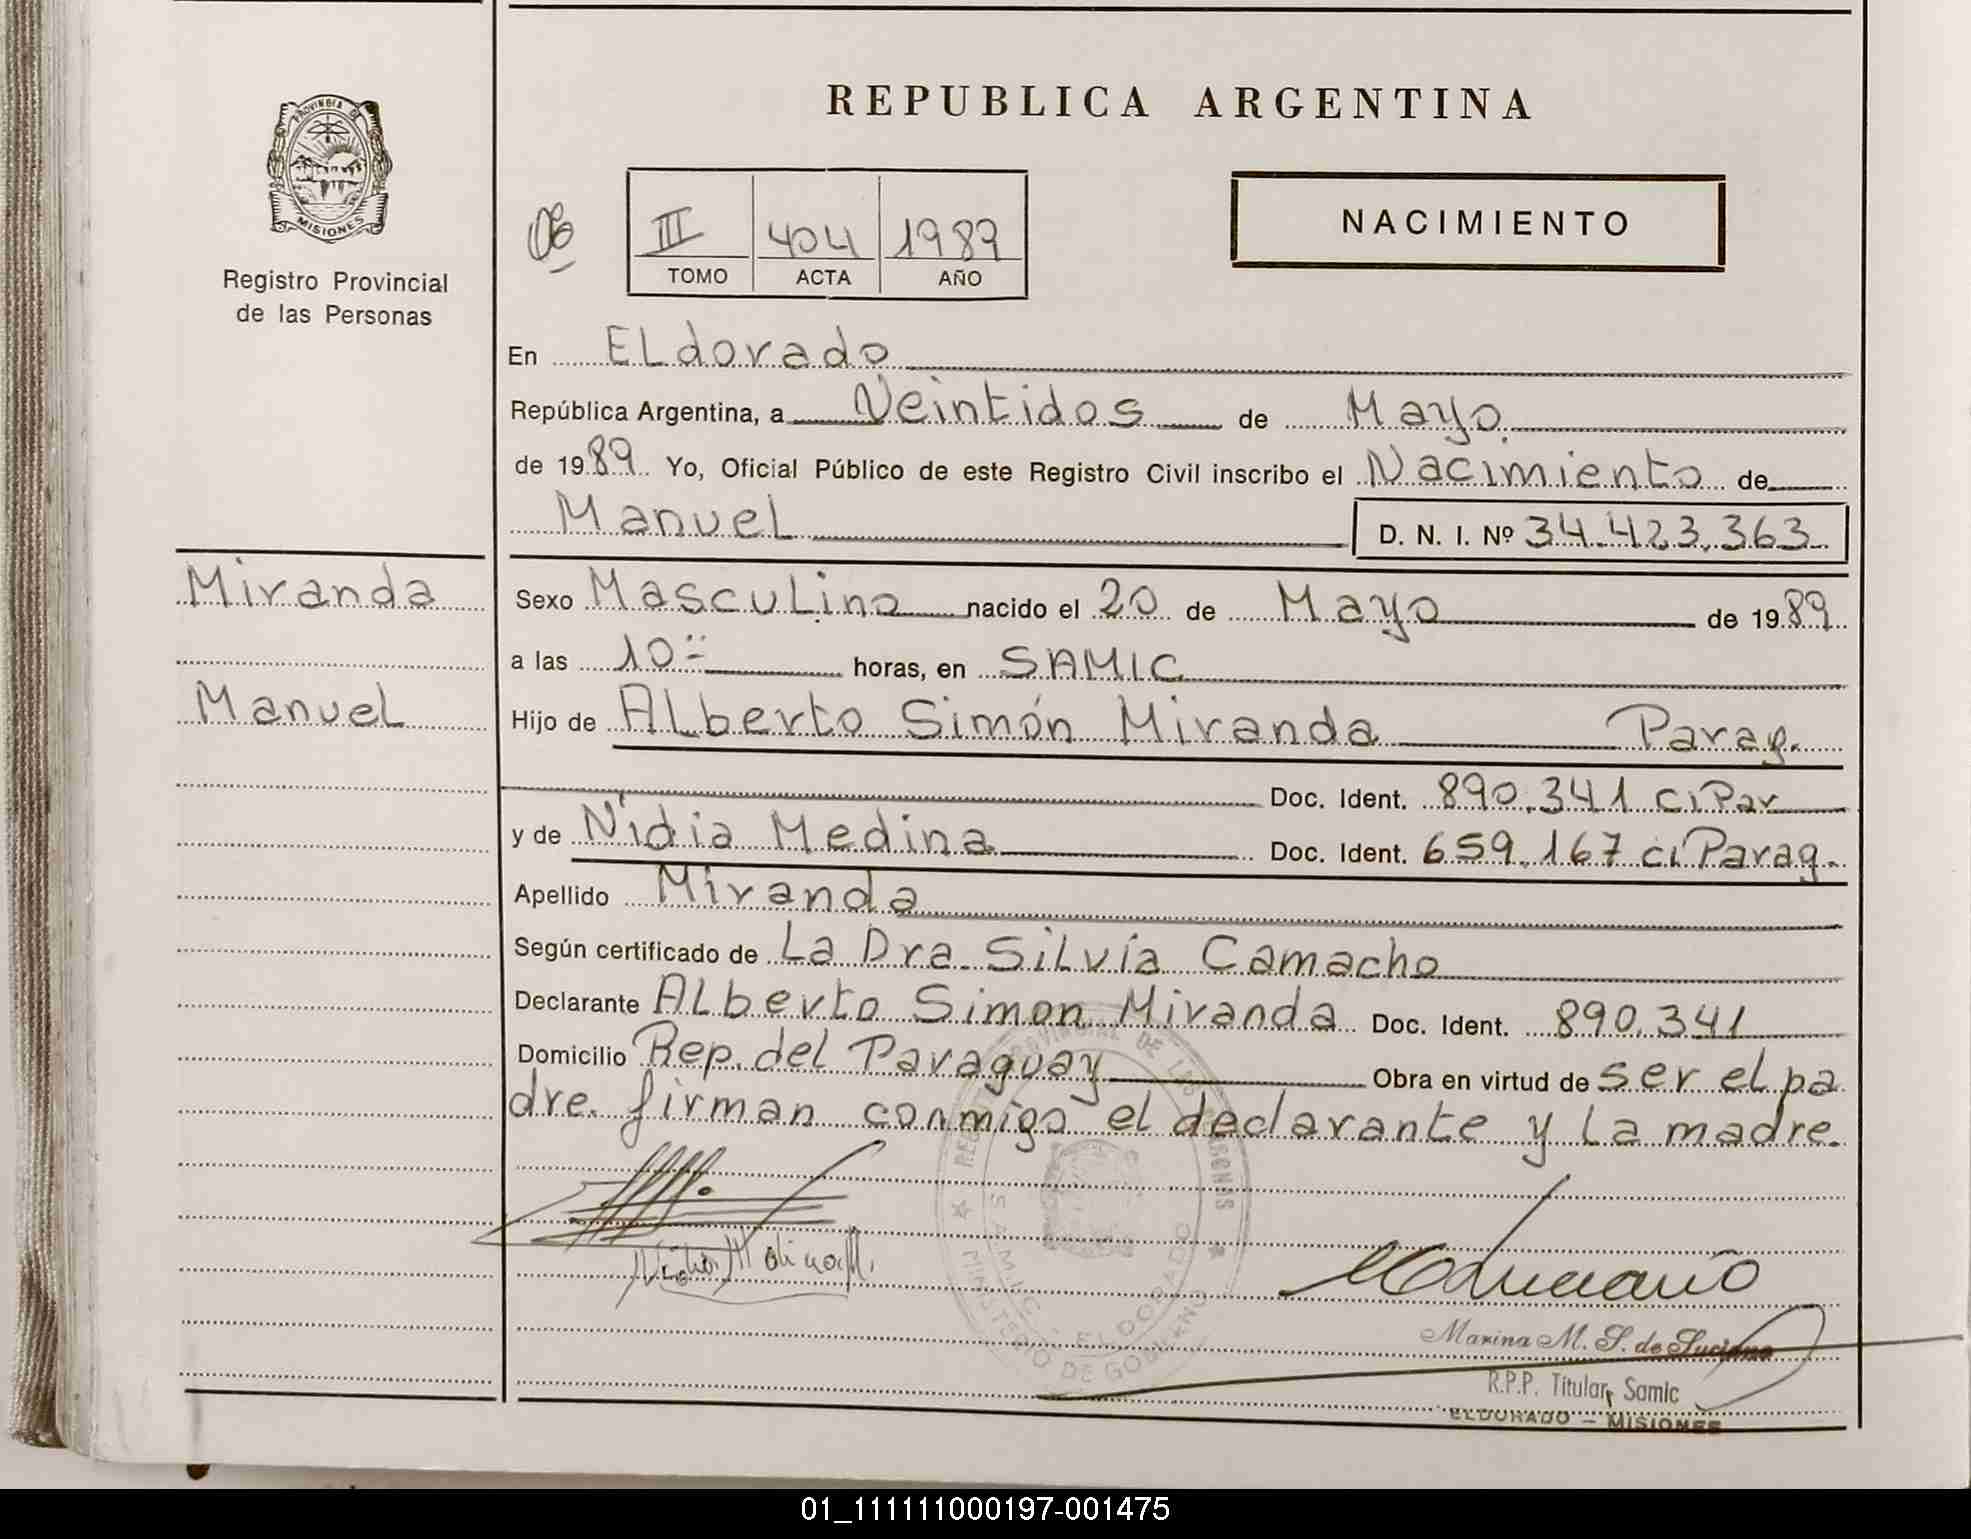 REPUBLICA ARGENTINA
PROVINCIA DE
MISIONES
Registro Provincial
de las Personas
06
III 404 1989
TOMO ACTA AÑO
NACIMIENTO
En ELdorado
República Argentina, a Veintidos de Mayo
de 1989 Yo, Oficial Público de este Registro Civil inscribo el Nacimiento de
ManueL D. N. I. Nº 34.423.363
Miranda
ManueL
Sexo MascuLino nacido el 20 de Mayo de 1989
a las 10 horas, en SAMIC
Hijo de ALberto Simón Miranda Parag.
Doc. Ident. 890.341 ci Par
y de Nidia Medina Doc. Ident. 659.167 ci Parag.
Apellido Miranda
Según certificado de La Dra. SiLvia Camacho
Declarante ALberto Simon Miranda Doc. Ident. 890.341
Domicilio Rep. del Paraguay Obra en virtud de ser el pa
dre. firman conmigo el declarante y La madre.
REGISTRO PROVINCIAL DE LAS PERSONAS
SAMIC - ELDORADO
MINISTERIO DE GOBIERNO
Marina M. S. de Luciano
R.P.P. Titular, Samic
ELDORADO - MISIONES
01_111111000197-001475